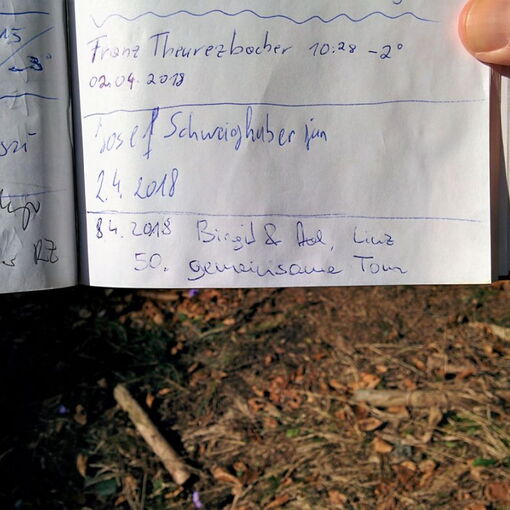 15
-3°
Franz Theurezbacher 10:28 -2°
02.04.2018
Josef Schweighuber jun
2.4.2018
8.4.2018 Birgit & Linz
50. gemeinsame Tour
RZ